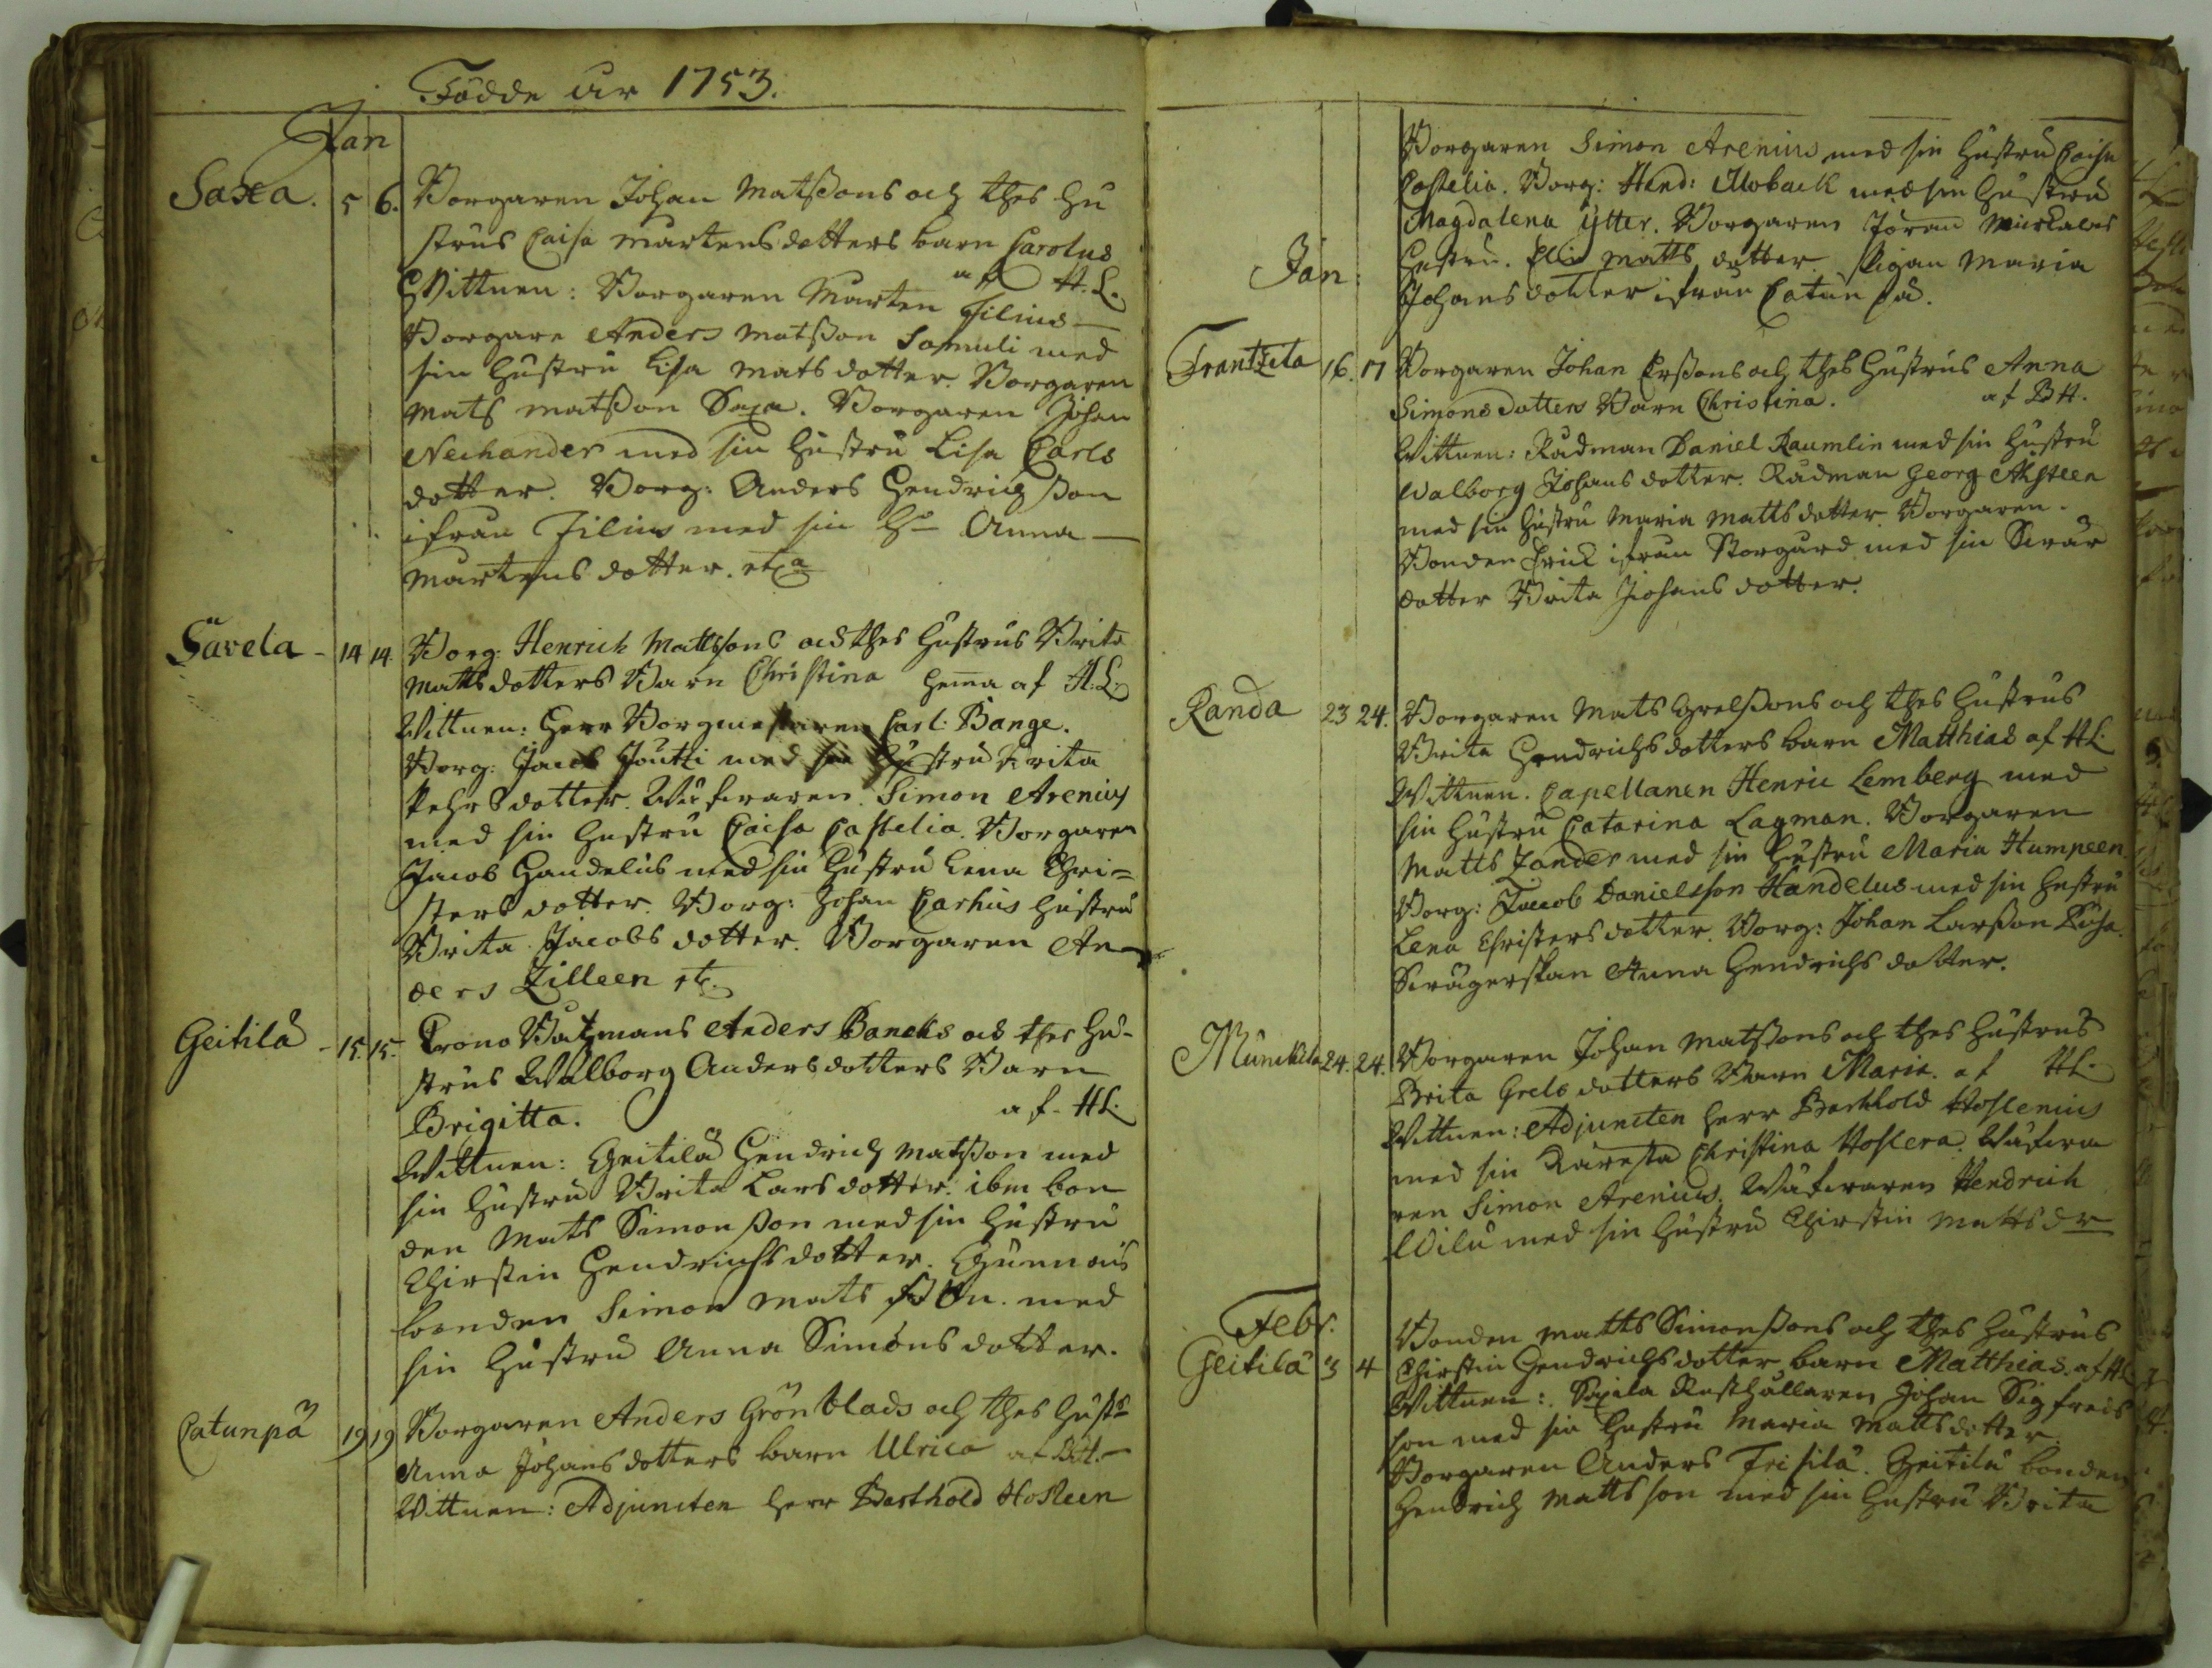 Födde åhr 1753.
Jan
Saxa. 5 6. Borgaren Johan Matssons och thes hu
strus Caisa Martens dotters barn Carolus
af H.L.
Wittnen: Borgaren Marten Filius
Borgare Anders Matsson Somuli med
sin hustru Lisa Mats dotter. Borgaren
Mats Matsson Saxa. Borgaren Johan
Neihander med sin hustru Lisa Carls
dotter. Borg: Anders Hendrichsson
ifrån Filius med sin h:u Anna
Martens dotter. etca
Sävela - 14 14. Borg: Henrich Mattssons och thes hustrus Brita
Matts dotters Barn Christina hema af H.L.
Wittnen: Herr Borgmestaren Carl Bange.
Borg: Jacob Joutti med sin hustru Brita
Pehrs dotter. Wäfwaren Simon Arenius
med sin hustru Caisa Castelia. Borgaren
Jacob Handelus med sin hustru Lena Chri=
sters dotter. Borg: Johan Carhus hustru
Brita Jacobs dotter. Borgaren An
ders Zilleen etc.
Geitila - 15. 15. Crono Båtzmans Anders Bancks och thes hu-
strus Walborg Anders dotters Barn
Brigitta. af HL.
Wittnen: Geitilä Hendrich Matsson med
sin hustru Brita Lars dotter. ibm bon
den Mats Simonsson med sin hustru
Chirstin Hendrichs dotter. Gunnois
bonden Simon Mats Son. med
sin hustru Anna Simons dotter.
Catunpä 19 19 Borgaren Anders Grönblads och thes hust:s
Anna Johans dotters barn Ulrica af BH.
Wittnen: Adjuncten herr Barthold Hosleen
Borgaren Simon Arenius med sin hustru Caisa
Castelia. Borg: Hend: Moback med sin hustru
Magdalena Ytter. Borgaren Jöran
Jan: hustru. Elin Matts dotter. Pigan Maria
Johans dotter ifrån Catunpä.
Frantzila 16. 17 Borgaren Johan Erssons och thes hustrus Anna
Simons dotters Barn Christina. af BH.
Wittnen: Rådman Daniel Raumlin med sin hustru
Walborg Johans dotter. Rådman Georg Ahsteen
med sin hustru Maria Matts dotter. Borgaren.
Bonden Erick ifrån Storgård med sin Swär
dotter Brita Johans dotter.
Randa 23 24. Borgaren Mats Grelssons och thes hustrus
Brita Hendrichs dotters barn Matthias af HL.
Wittnen. Capellanen Henric Lemberg med
sin hustru Catarina Lagman. Borgaren
Matts Zander med sin hustru Maria Humpeen.
Borg: Jacob Danielsson Handelus med sin hustru
Lena Christers dotter. Borg: Johan Larsson
Swägerskan Anna Hendrichs dotter.
Munckila 24. 24. Borgaren Johan Matssons och thes hustrus
Brita Grels dotters Barn Maria. af HL.
Wittnen: Adjuncten herr Barthold Hoslenius
med sin Käresta Christina Hoslera. Wäfwa
ren Simon Arenius. Wäfwaren Hendrich
Wilu med sin hustru Chirstin Matts dr
Febr.
Geitilä 3 4 Bonden Matts Simonssons och thes hustrus
Chirstin Hendrichs dotter barn Matthias. af HL
Wittnen: Rusthållaren Johan Sigfreds
son med sin hustru Maria Matts dotter.
Borgaren Anders Frisilä. Geitilä bonden
Hendrich Matts son med sin hustru Brita